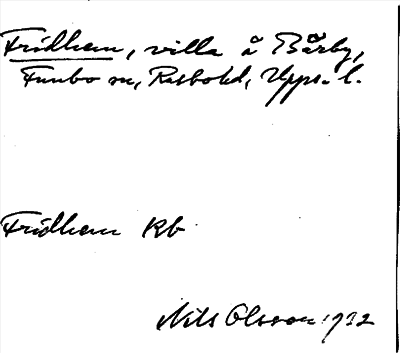 Fridhem, villa å Bärby,
Funbo sn, Rasbo hd, Upps. l.
Fridhem Kb
Nils Olsson 1932